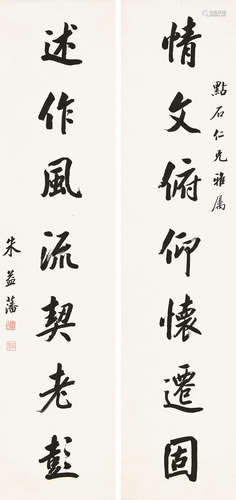 點石仁兄雅屬
情文俯仰懷遷固
述作風流契老彭
朱益藩